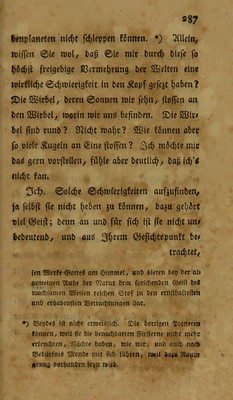 287
benplaneten nicht schleppen können. *) Allein,
wissen Sie wol, daß Sie mir durch diese so
höchst freigebige Vermehrung der Welten eine
wirkliche Schwierigkeit in den Kopf gesezt haben?
Die Wirbel, deren Sonnen wir sehn, stossen an
den Wirbel, worin wir uns befinden. Die Wir-
bel sind rund? Nicht wahr? Wie können aber
so viele Kugeln an Eine stossen? Ich möchte mir
das gern vorstellen, fühle aber deutlich, daß ich's
nicht kan.
Ich. Solche Schwierigkeiten aufzufinden,
ja selbst sie nicht heben zu können, dazu gehört
viel Geist; denn an und für sich ist sie nicht un-
bedeutend, und aus Ihrem Gesichtspunkt be-
trachtet,
sen Werke Gottes am Himmel, und bieten bey der al-
gemeinen Ruhe der Natur dem forschenden Geist des
wachsamen Weisen reichen Stof zu den ernsthaftesten
und erhabensten Betrachtungen dar.
*) Beydes ist nicht erweislich. Die dortigen Planeten
können, weil sie die benachbarten Fixsterne nicht mehr
erleuchten, Nächte haben, wie wir, und auch nach
Bedürfnis Monde mit sich führen, weil dazu Raum
genug vorhanden seyn wird.